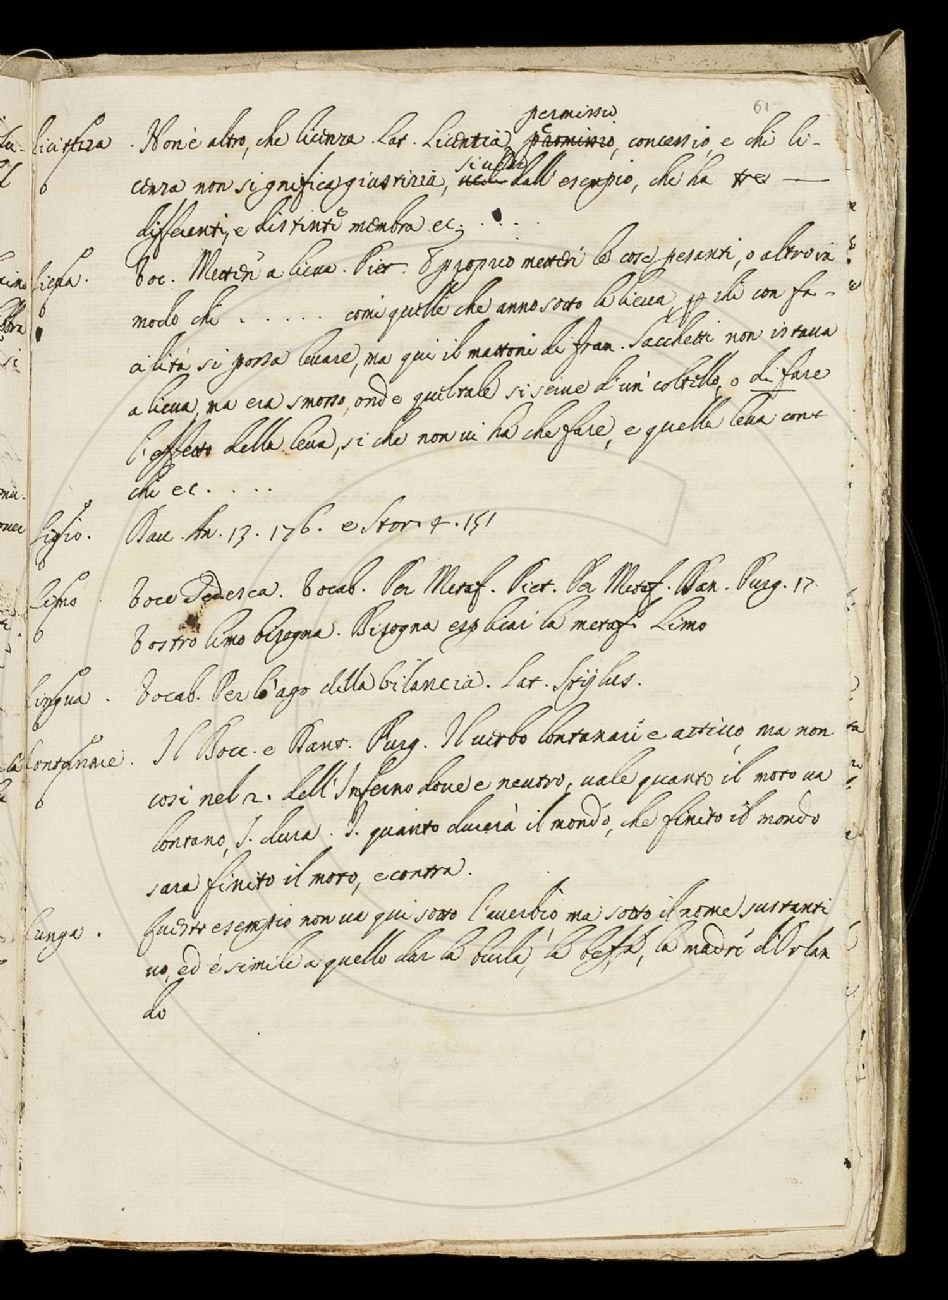 61
permissio
Non è altro, che licenza. Lat. Licentia, promissio, concessio, e che li-
cenza non significa giustizia, si vede dall' esempio, che ha tre
differenti, e distinti membra ec. . . .
Lieva. Voc. Metter a lieva. Pist. È proprio metter le cose pesanti, o altro in
modo che . . . . . come quelle che anno sotto la lieva, per che con fa-
cilità si possa levare, ma qui il mattone di Fran. Sacchetti non istava
a lieva, ma era smosso, onde quel tale si serve d'un coltello, o di fare
l'effetto della leva, si che non vi ha che fare, e quella leva con-
chi ec. . . .
Ligio. Dav. An. 13. 176. e Stor. 4. 151
Limo Voce Tedesca. Vocab. Per Metaf. Pist. Per Metaf. Dan. Purg. 17
Vostro limo bisogna. Bisogna esplicar la metaf. Limo
Lingua. Vocab. Per l'ago della bilancia. Lat. Stylus.
Lontanare. Il Bocc. e Dant. Purg. Il verbo lontanare è attivo, ma non
così nel 2. dell'Inferno dove è neutro, vale quanto il moto va
lontano, s. dura. I. quanto durerà il mondo, che finito il mondo
sara finito il moto, e contra.
Lunga. Questo esempio non va qui sotto l'averbio ma sotto il nome sustanti
vo, ed è simile a quello dar la burla, la beffa, la madre d'Orlan
do